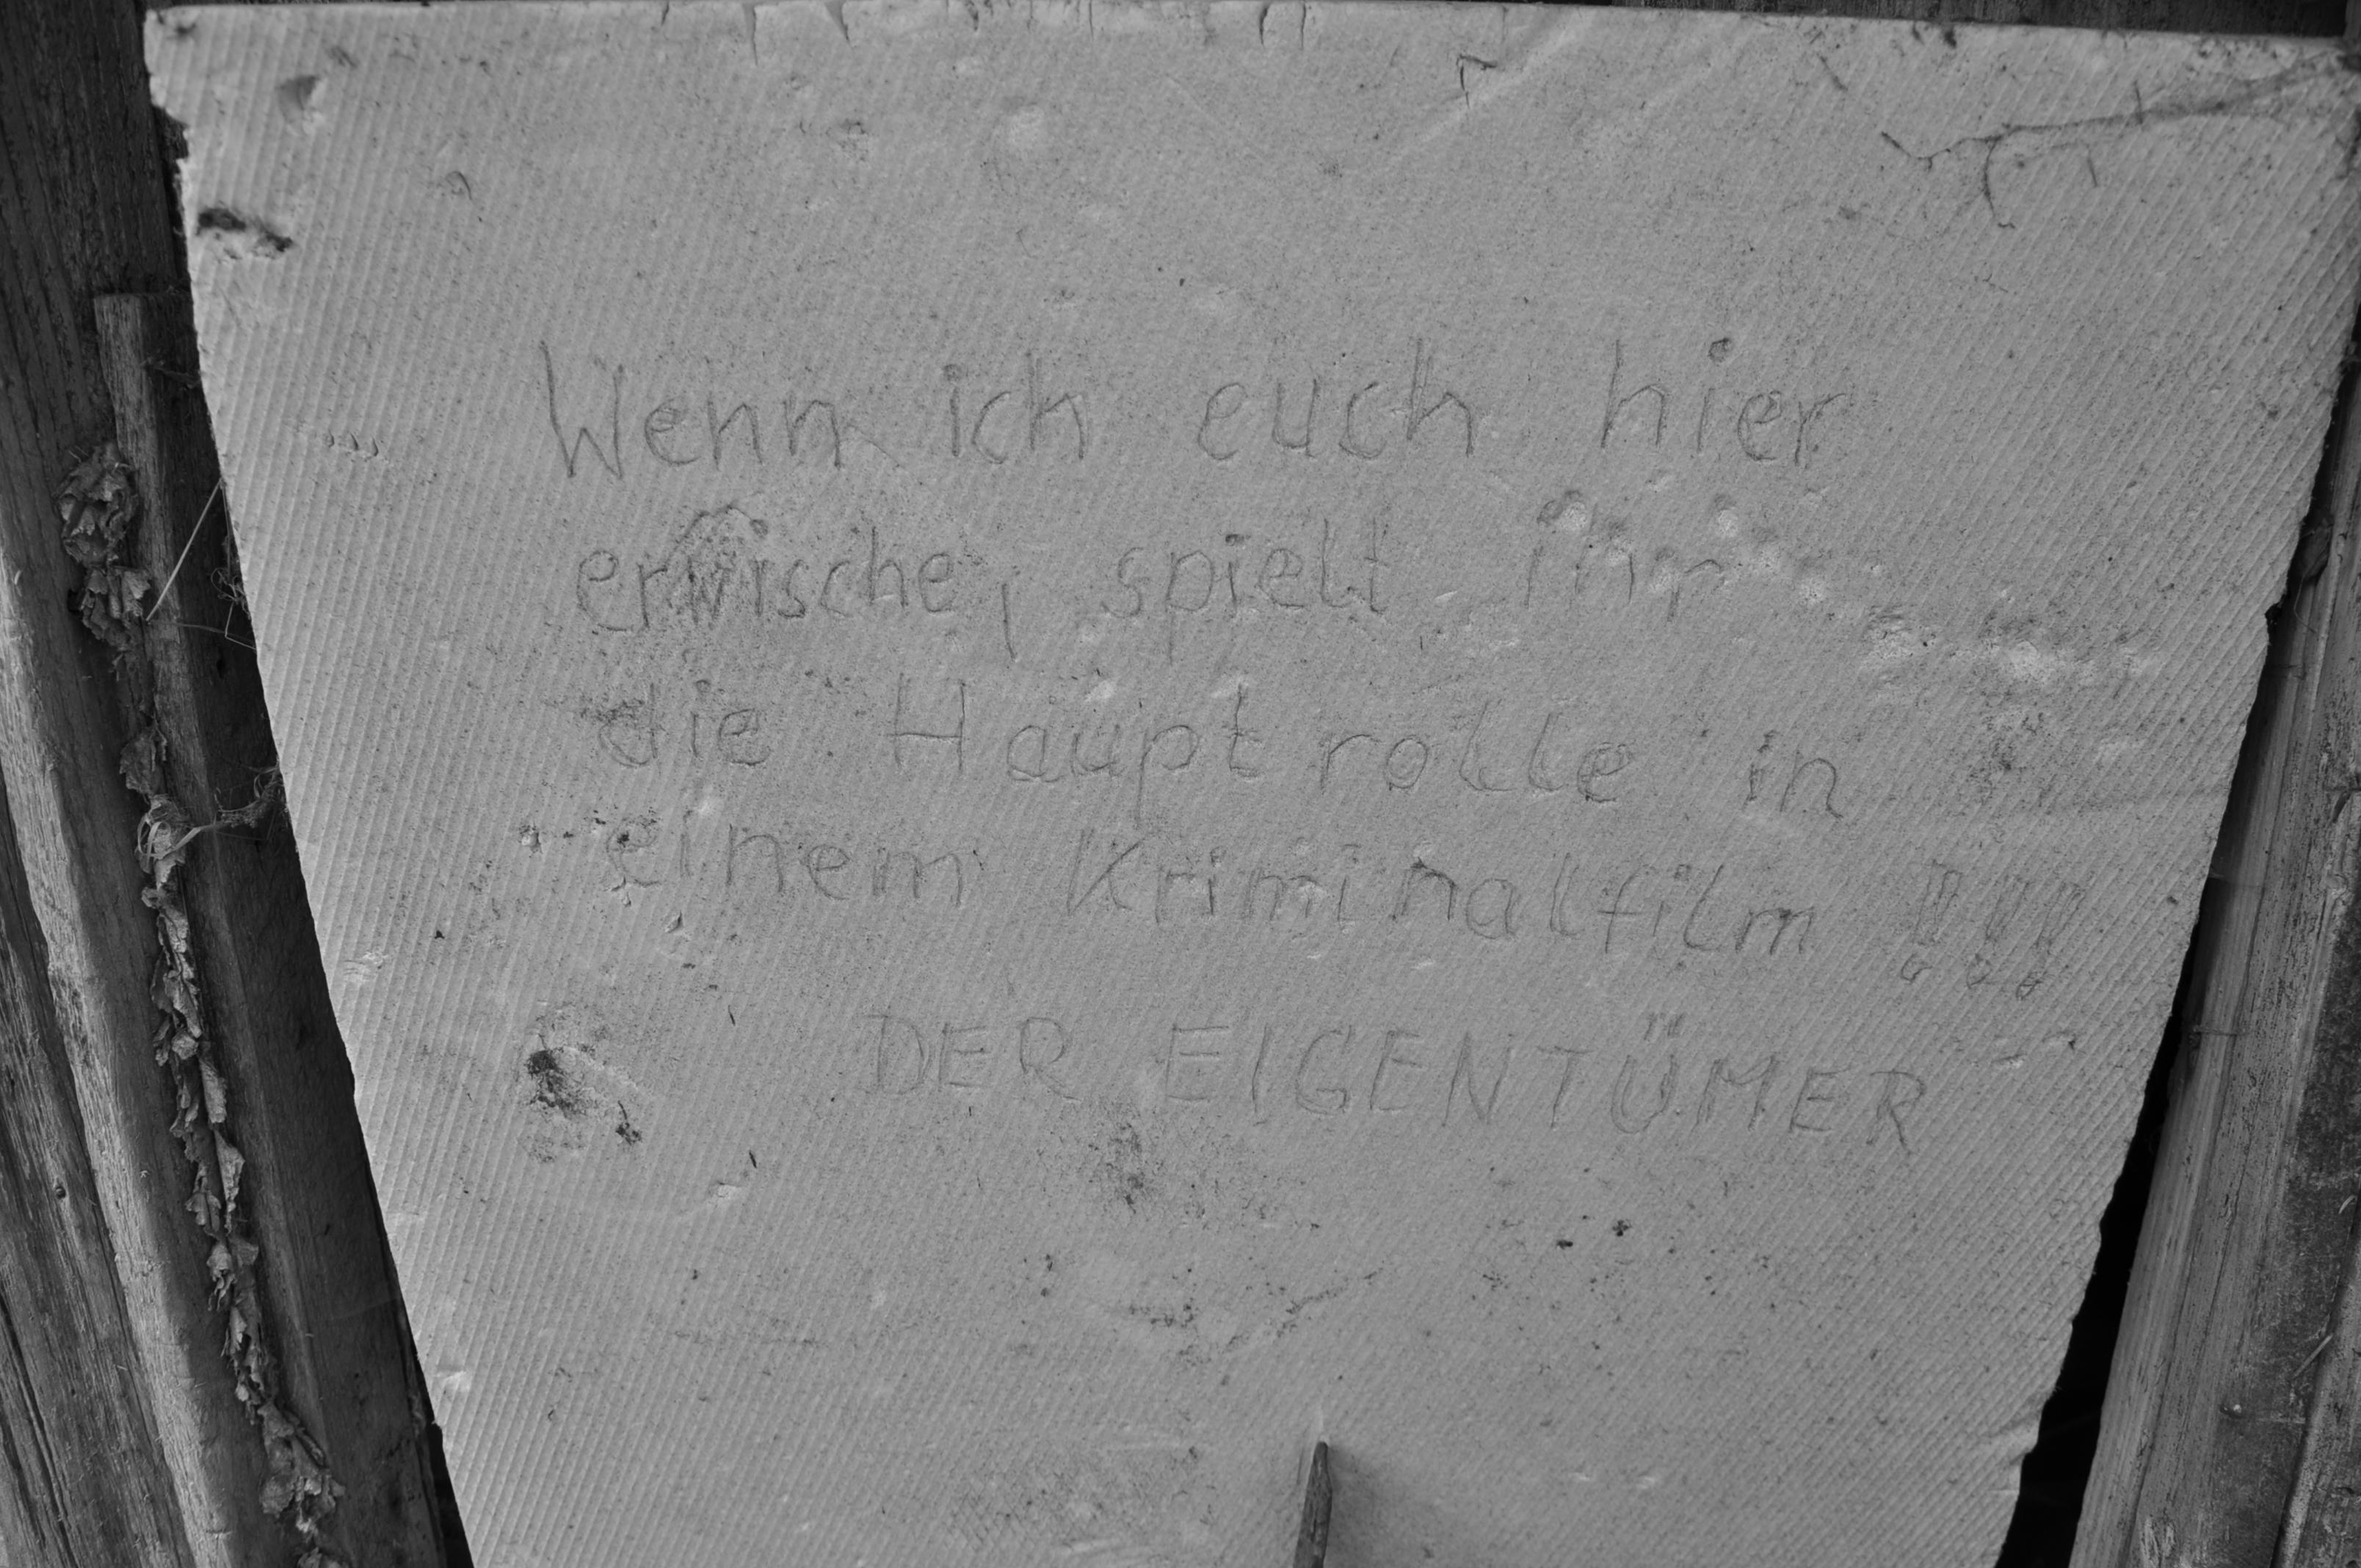 Wenn ich euch hier
erwische, spielt ihr
die Hauptrolle in
einem Kriminalfilm !!!
DER EIGENTÜMER